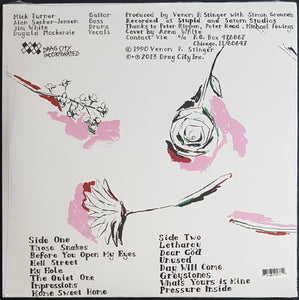 Mick Turner Guitar
Alan Secher-Jensen Bass
Jim White Drums
Dugald Mackenzie Vocals
DRAG CITY
INCORPORATED
Produced by Venom P. Stinger with Simon Grounds
Recorded at Stupid and Saturn Studios
Thanks to Peter Rippon, Peter Read, Michael Fewings
Cover by Anna White
Contact Via P.O. Box 476867
Chicago, Il/60647
© 1990 Venom P. Stinger
℗+© 2013 Drag City Inc.
Side One
Those Snakes
Before You Open My Eyes
Hell Street
My Hole
The Quiet One
Impressions
Home Sweet Home
Side Two
Lethargy
Dear God
Unused
Day Will Come
Greystones
What's Yours is Mine
Pressure Inside